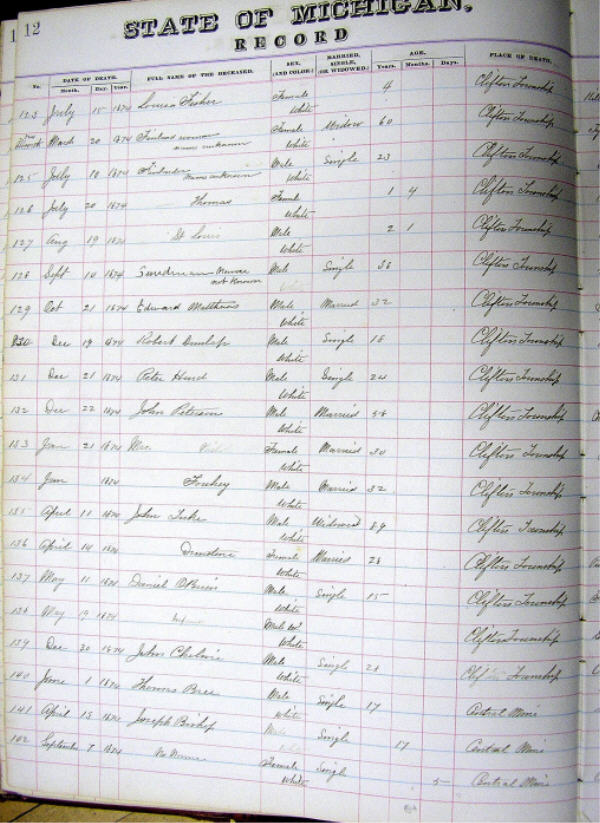 12
STATE OF MICHIGAN.
RECORD
No. DATE OF DEATH. Month. Day. Year. FULL NAME OF THE DECEASED. SEX, (AND COLOR.) MARRIED, SINGLE, (OR WIDOWED.) AGE. Years. Months. Days. PLACE OF DEATH.
123 July 15 1874 Louisa Fisher Female White 4 Clifton Township
March 20 1874 woman name unknown Female White Widow 60 Clifton Township
125 July 18 1874 name unknown Male White Single 23 Clifton Township
126 July 20 1874 Thomas Female White 1 4 Clifton Township
127 Aug 19 1874 St Louis Male White 2 1 Clifton Township
128 Sept 10 1874 Swedman Name not Known Male Single 36 Clifton Township
129 Oct 21 1874 Edward Matthews Male White Married 32 Clifton Township
130 Dec 19 1874 Robert Dunlap Male White Single 18 Clifton Township
131 Dec 21 1874 Peter Hind Male White Single 24 Clifton Township
132 Dec 22 1874 John Peterson Male White Married 58 Clifton Township
133 Jan 21 1874 Mrs. Female White Married 30 Clifton Township
134 Jan 1874 Male White Married 32 Clifton Township
135 April 11 1874 John Male White Widowed 89 Clifton Township
136 April 14 1874 Female White Married 28 Clifton Township
137 May 11 1874 Daniel OBrien Male White Single 15 Clifton Township
138 May 19 1874 Male White Clifton Township
139 Dec 30 1874 John Male White Single 21 Clifton Township
140 June 1 1874 Thomas Bree Male White Single 17 Central Mine
141 April 13 1874 Joseph Bishop Male White Single 17 Central Mine
142 September 7 1874 No Name Female White Single 5 Central Mine